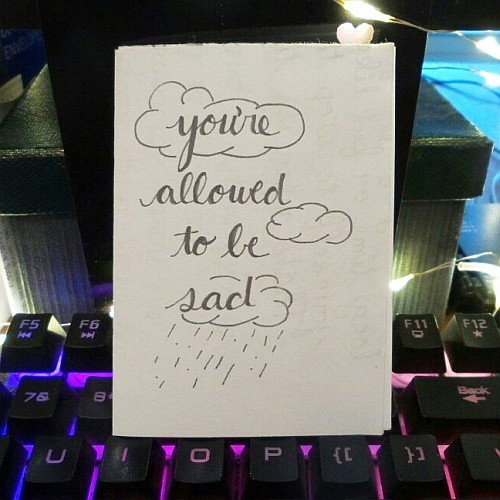 you're
allowed
to be
sad
F5 F6 F11 F12
7& 8* Back
U I O P {[ }]